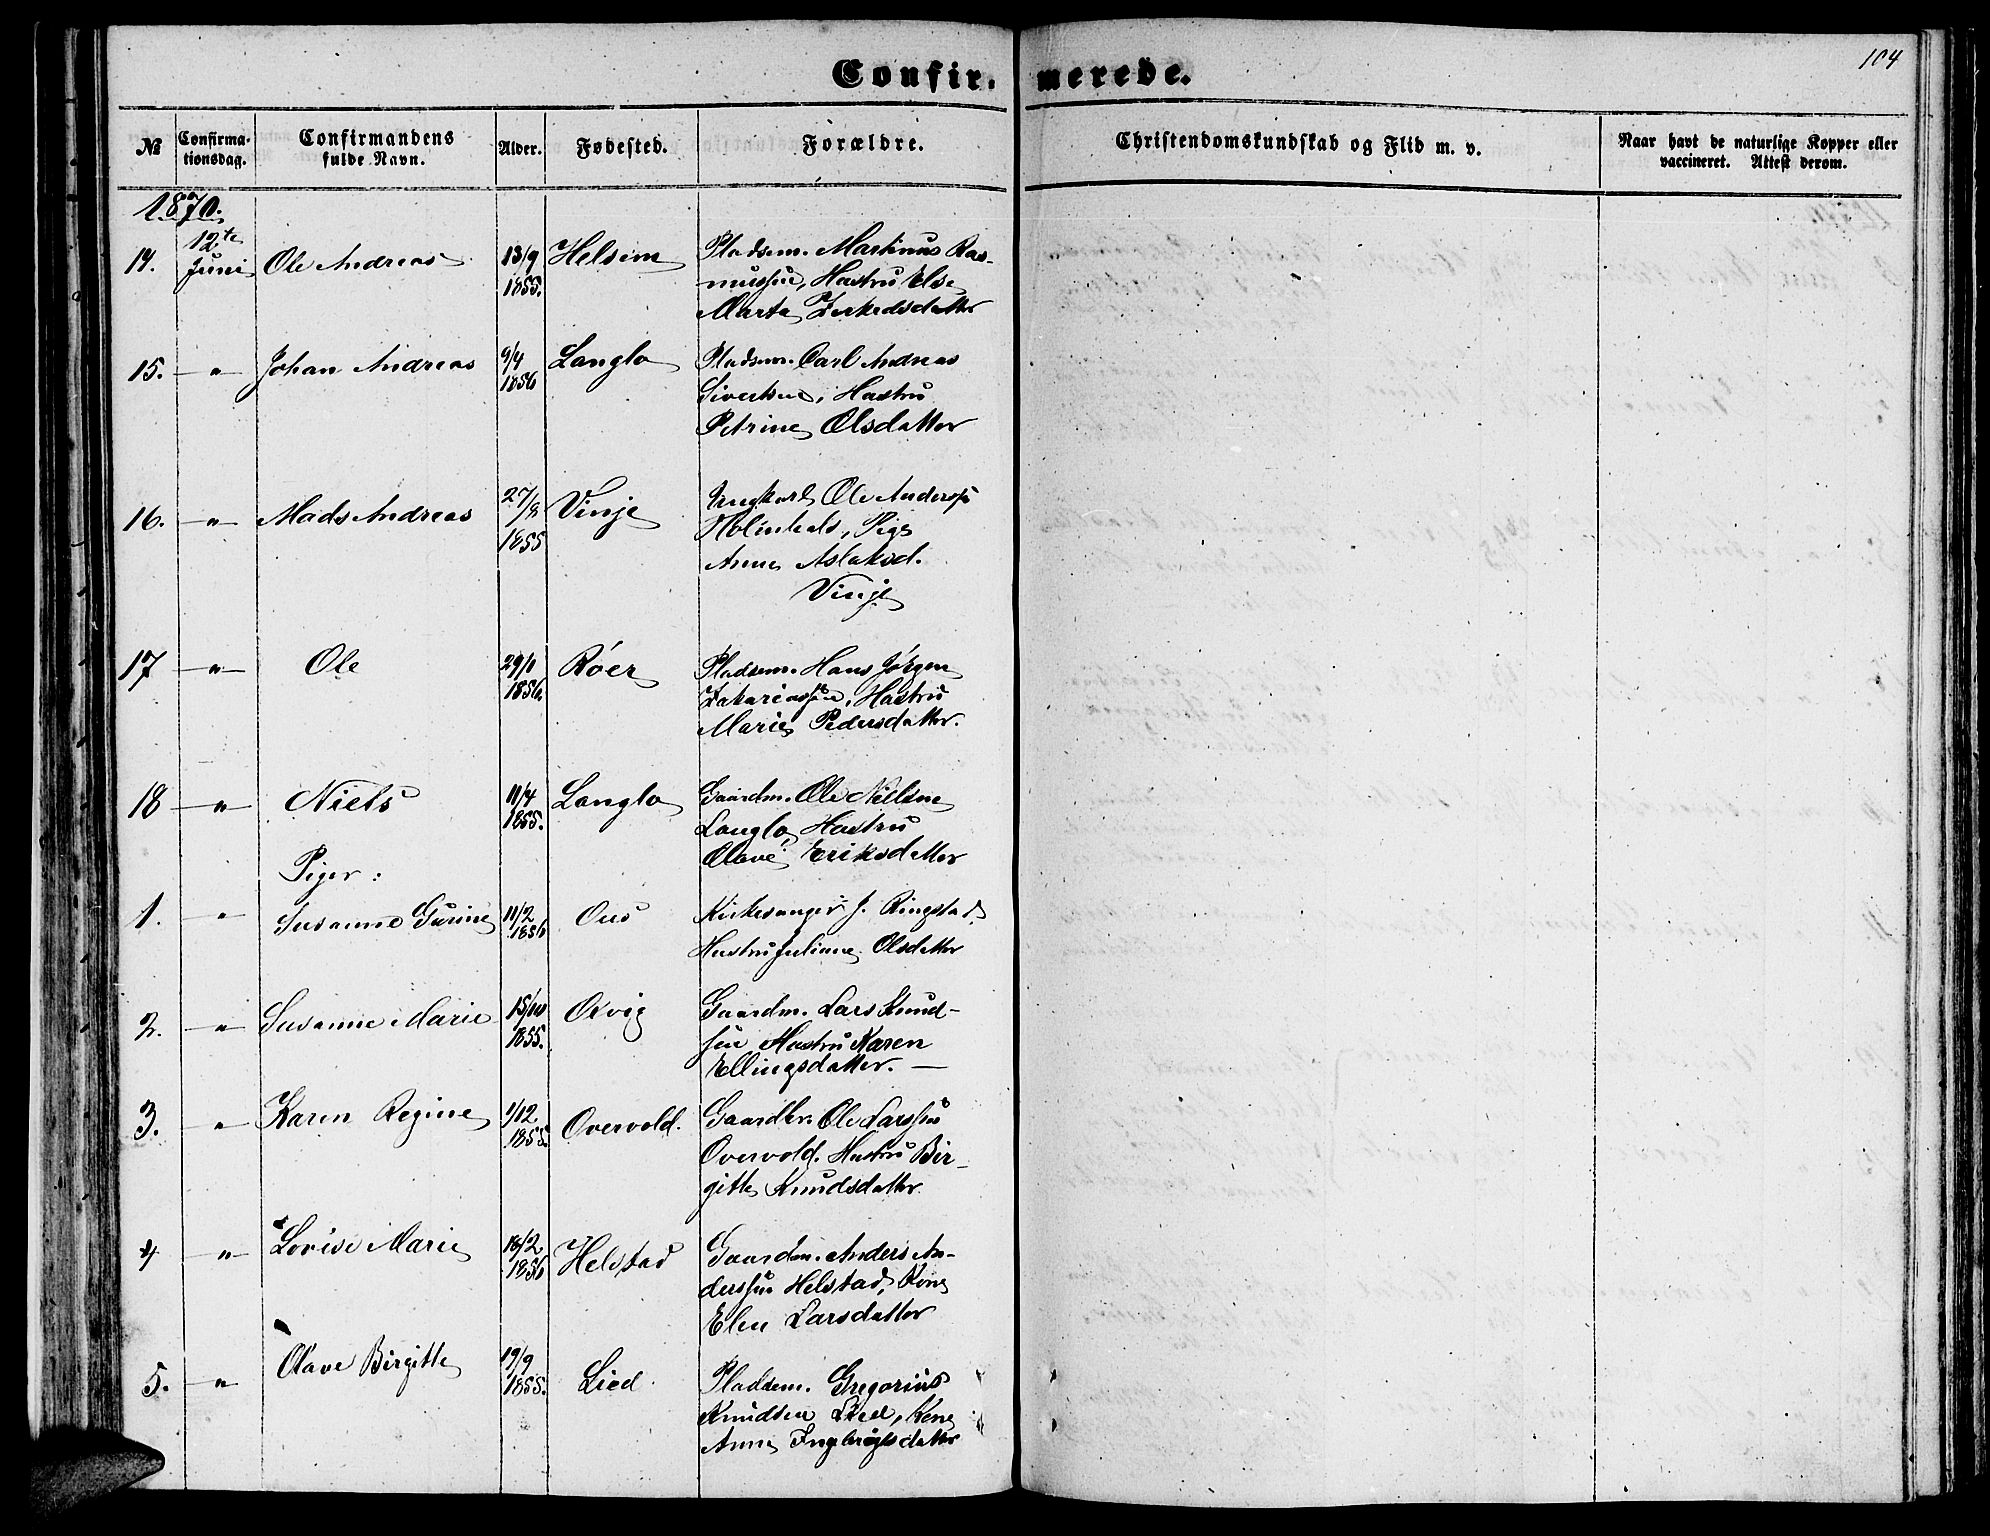 104
Confir. merede.
№ Confirma- tionsdag. Confirmandens fulde Navn. Alder. Fødested. Forældre. Christendomskundskab og Flid m. v. Naar havt de naturlige Kopper eller vaccineret. Attest derom.
1870.
12te
14. Juni Ole Andreas 13/9 Helsem Pladsem. Martinus Ras-
1855. mussen, Hustru Else
Marta
15. " Johan Andreas 9/4 Langlo Pladsm. Carl Andreas
1856 Sivertsen, Hustru
Petrine Olsdatter
16. " Mads Andreas 27/8 Vinje Ungkarl Ole Anders
1855 Pige
Anne Aslaksd.
Vinje
17 " Ole 29/1 Røer Pladsem. Hans Jørgen
1856. Zakariassen, Hustru
Marie Pedersdatter.
18 " Niels 11/4 Langlo Gaardm. Ole Nielsen
1855. Langlo, Hustru
Olave Eriksdatter
Piger:
1. " Susanne Gurine 11/2 Ous Kirkesanger J. Ringstad,
1856 Hustru Juliane Olsdatter
2. " Susanne Marie 15/10 Oxvig Gaardm. Lars Knud-
1855. sen Hustru Karen
Ellingsdatter. —
3. " Karen Regine 1/12 Overvold. Gaardbr. Ole Larssen
1855. Overvold. Hustru Bir-
gitte Knudsdatter.
4 " Lovise Marie 18/2 Helstad Gaardm. Anders An-
1856 derssen Helstad, Kone
Elen Larsdatter
5. " Olave Birgitte 19/9 Lied Pladsem. Gregorius
1855. Knudsen Lied, Kone
Anne Ingebrigtsdatter